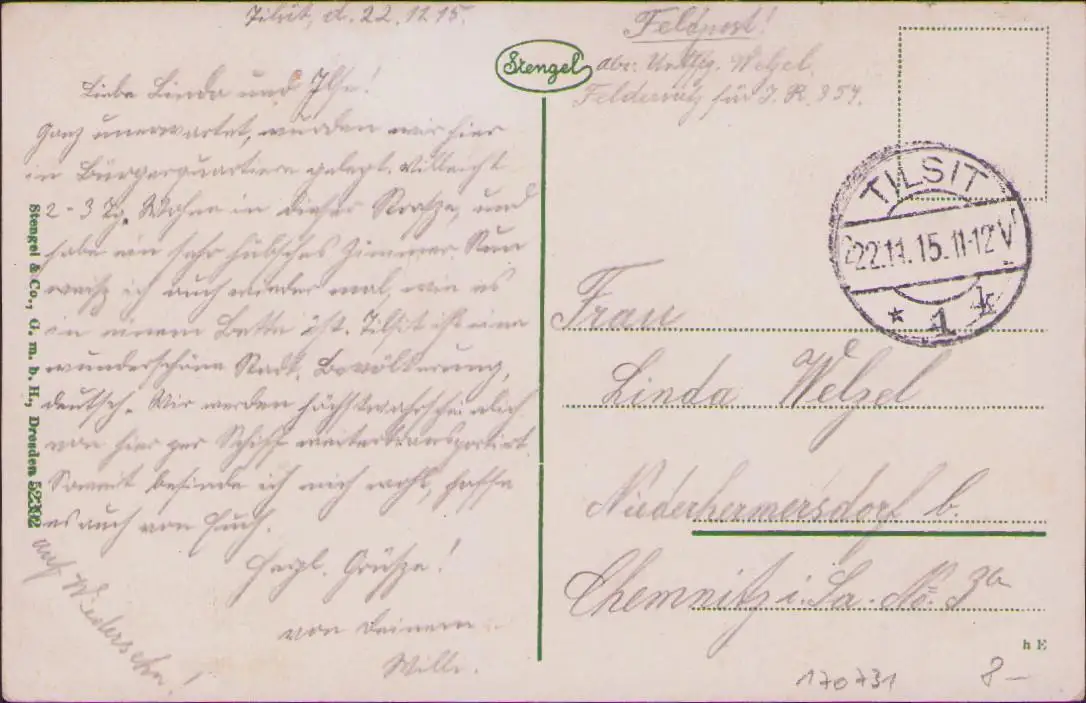 Tilsit, d. 22.11.15.
Liebe Linda und Ilse!
Ganz unerwartet, wurden wir hier
in Bürgerquartiere gelegt. Villeicht
2-3 Tg. Wohne in dieser Straße, und
habe ein sehr hübsches Zimmer. Nun
weiß ich auch wieder mal, wie es
in einem Bette ist. Tilsit ist eine
wunderschöne Stadt. Bevölkerung,
deutsch. Wir werden höchstwahrscheinlich
von hier per Schiff weitertransportirt.
Soweit befinde ich mich wohl, hoffe
es auch von Euch.
Herzl. Grüße!
von Deinem
Willi.
auf Wiedersehn!
Stengel & Co., G. m. b. H., Dresden 52312
Stengel
Feldpost!
Abs: Welzel.
für I. R. 354.
TILSIT
22.11.15.11-12V
* 1 k
Frau
Linda Welzel
Niederhermersdorf b.
Chemnitz i. Sa. No. 3a
h E
170731
8-